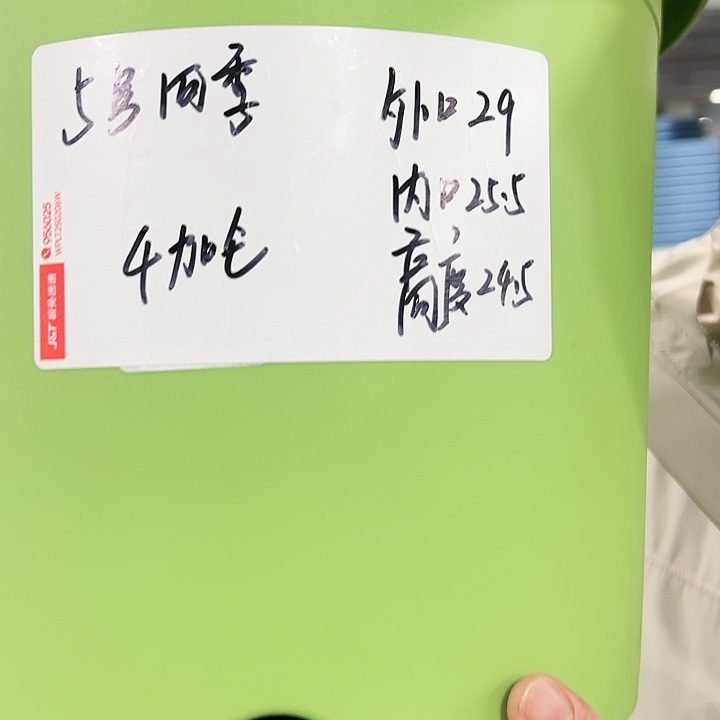 5号四季
4加仑
外口29
内口25.5
高度24.5
956025
J&T 极兔速递